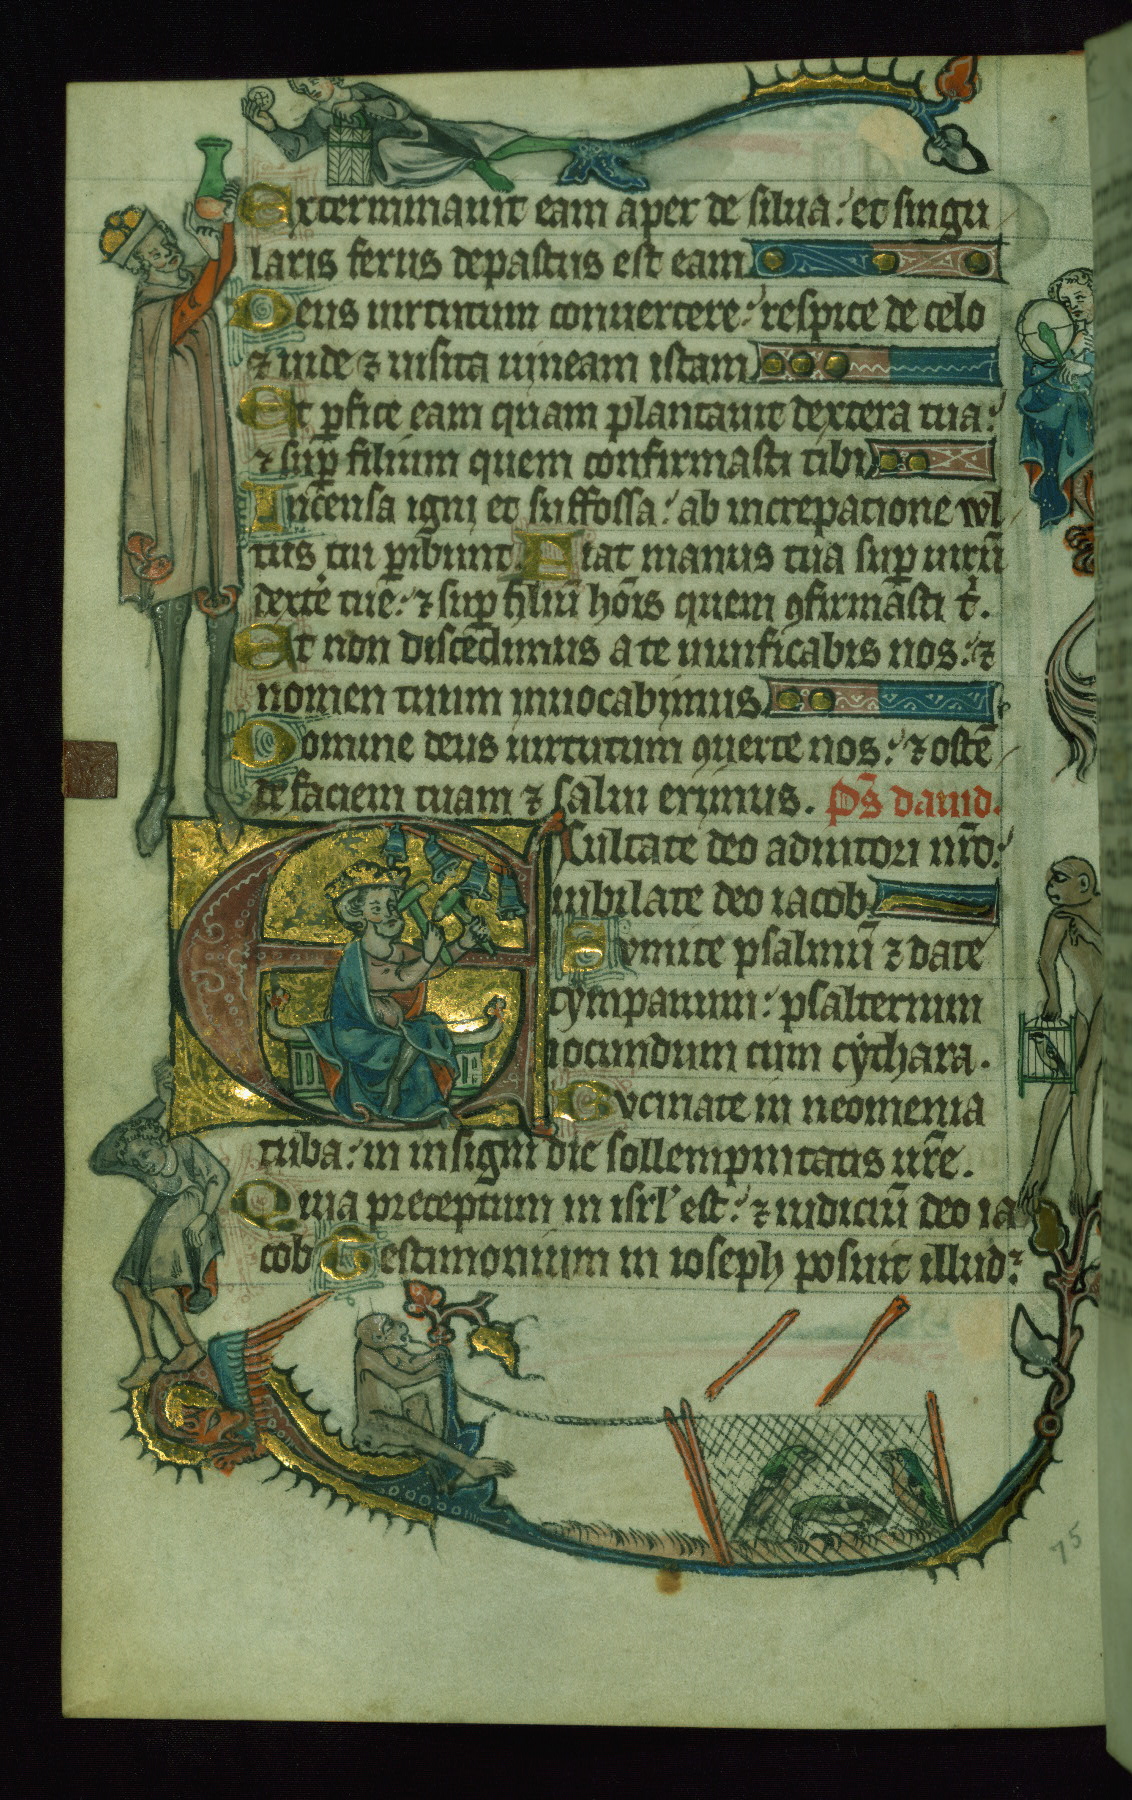 Exterminauit eam aper de silua: et singu
laris ferus depastus est eam
Deus uirtutum conuertere: respice de celo
⁊ uide ⁊ uisita uineam istam
Et ꝑfice eam quam plantauit dextera tua:
⁊ suꝑ filium quem confirmasti tibi
Incensa igni et suffossa: ab increpatione wl
tus tui ꝑibunt. Fiat manus tua suꝑ uirū
dexte̾ tue: ⁊ suꝑ filiū hoīs quem ꝯfirmasti t̾.
Et non discedimus a te uiuificabis nos: ⁊
nomen tuum inuocabimus
Domine deus uirtutum ꝯuerte nos: ⁊ ostē
de faciem tuam ⁊ salui erimus. Ps̄ dauid.
Exultate deo adiutori nr̄o:
iubilate deo iacob
Sumite psalmū ⁊ date
tympanum: psalterium
iocundum cum cythara.
Bucinate in neomenia
tuba: in insigni die sollempnitatis ur̄e.
Quia preceptum in isrl' est: ⁊ iudiciū deo ia
cob Testimonium in ioseph posuit illud:
75